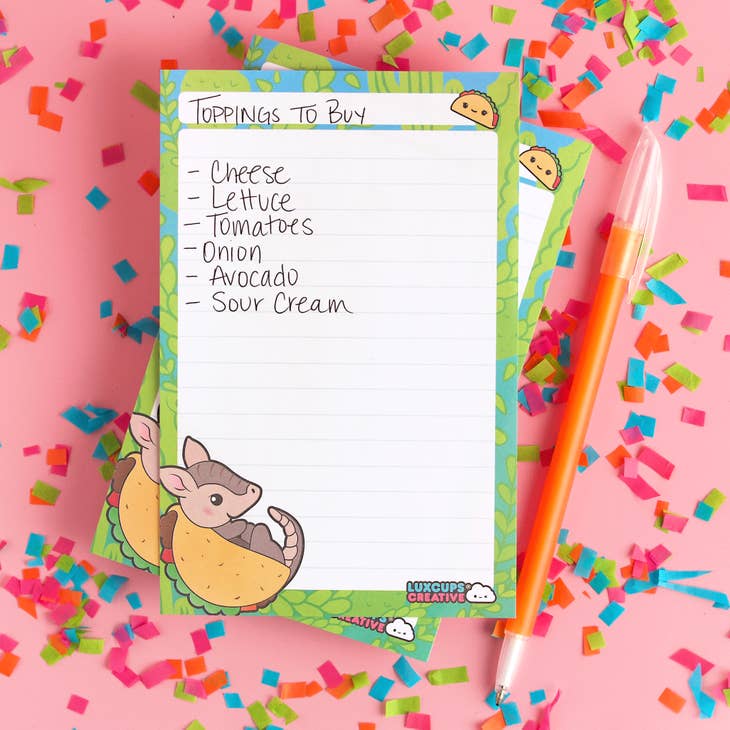 Toppings to Buy
- Cheese
- Lettuce
- Tomatoes
- Onion
- Avocado
- Sour Cream
LUXCUPS®
CREATIVE
CREATIVE